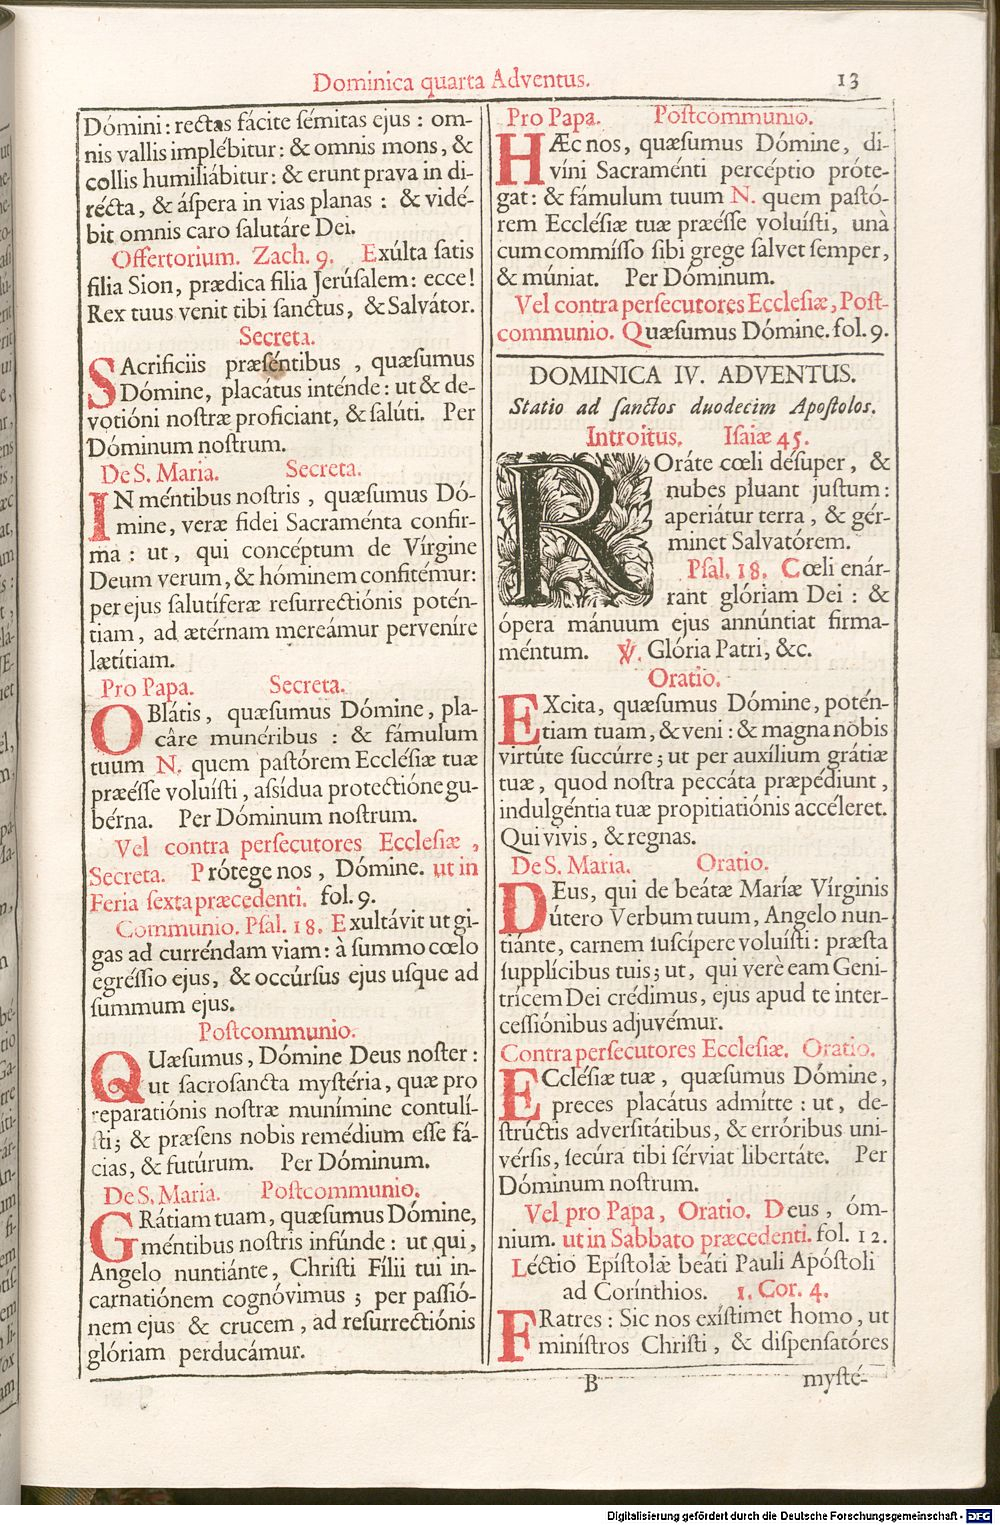 Dominica quarta Adventus.
13
Dómini: rectas fácite ſémitas ejus : om-
nis vallis implébitur: & omnis mons, &
collis humiliábitur: & erunt prava in di-
récta, & áſpera in vias planas : & vidé-
bit omnis caro ſalutáre Dei.
Offertorium. Zach. 9. Exúlta ſatis
filia Sion, prædica filia Jerúſalem: ecce!
Rex tuus venit tibi ſanctus, & Salvátor.
Secreta.
SAcrificiis præſéntibus , quæſumus
Dómine, placátus inténde: ut & de-
votióni noſtræ proficiant, & ſalúti. Per
Dóminum noſtrum.
De S. Maria. Secreta.
IN méntibus noſtris , quæſumus Dó-
mine, veræ fidei Sacraménta confir-
ma : ut , qui concéptum de Vírgine
Deum verum, & hóminem confitémur:
per ejus ſalutíferæ reſurrectiónis potén-
tiam, ad ætérnam mereámur perveníre
lætítiam.
Pro Papa. Secreta.
OBlátis, quæſumus Dómine, pla-
câre munéribus : & fámulum
tuum N. quem paſtórem Eccléſiæ tuæ
præéſſe voluíſti, aſsídua protectióne gu-
bérna. Per Dóminum noſtrum.
Vel contra perſecutores Eccleſiæ ,
Secreta. Prótege nos , Dómine. ut in
Feria ſexta præcedenti. fol. 9.
Communio. Pſal. 18. Exultávit ut gi-
gas ad curréndam viam: à ſummo cœlo
egréſſio ejus, & occúrſus ejus uſque ad
ſummum ejus.
Poſtcommunio.
QUæſumus, Dómine Deus noſter :
ut ſacroſancta myſtéria, quæ pro
reparatiónis noſtræ munímine contulí-
ſti; & præſens nobis remédium eſſe fá-
cias, & futúrum. Per Dóminum.
De S. Maria. Poſtcommunio.
GRátiam tuam, quæſumus Dómine,
méntibus noſtris infúnde: ut qui,
Angelo nuntiánte, Chriſti Fílii tui in-
carnatiónem cognóvimus ; per paſſió-
nem ejus & crucem, ad reſurrectiónis
glóriam perducámur.
Pro Papa. Poſtcommunio.
HÆc nos, quæſumus Dómine, di-
víni Sacraménti percéptio próte-
gat: & fámulum tuum N. quem paſtó-
rem Eccléſiæ tuæ præéſſe voluíſti, unà
cum commíſſo ſibi grege ſalvet ſemper,
& múniat. Per Dóminum.
Vel contra perſecutores Eccleſiæ, Poſt-
communio. Quæſumus Dómine. fol. 9.
DOMINICA IV. ADVENTUS.
Statio ad ſanctos duodecim Apoſtolos.
Introitus. Iſaiæ 45.
ROráte cœli déſuper, &
nubes pluant juſtum:
aperiátur terra, & gér-
minet Salvatórem.
Pſal. 18. Cœli enár-
rant glóriam Dei : &
ópera mánuum ejus annúntiat firma-
méntum. ℣. Glória Patri, &c.
Oratio.
EXcita, quæſumus Dómine, potén-
tiam tuam, & veni: & magna nobis
virtúte ſuccúrre; ut per auxílium grátiæ
tuæ, quod noſtra peccáta præpédiunt,
indulgéntia tuæ propitiatiónis accéleret.
Qui vivis, & regnas.
De S. Maria. Oratio.
DEus, qui de beátæ Maríæ Vírginis
útero Verbum tuum, Angelo nun-
tiánte, carnem ſuſcípere voluíſti: præſta
ſupplícibus tuis; ut, qui verè eam Geni-
trícem Dei crédimus, ejus apud te inter-
ceſſiónibus adjuvémur.
Contra perſecutores Eccleſiæ. Oratio.
ECcléſiæ tuæ, quæſumus Dómine,
preces placátus admítte : ut, de-
ſtrúctis adverſitátibus, & erróribus uni-
vérſis, ſecúra tibi ſérviat libertáte. Per
Dóminum noſtrum.
Vel pro Papa, Oratio. Deus, óm-
nium. ut in Sabbato præcedenti. fol. 12.
Léctio Epíſtolæ beáti Pauli Apóſtoli
ad Corínthios. 1. Cor. 4.
FRatres: Sic nos exíſtimet homo, ut
miníſtros Chriſti, & diſpenſatóres
B
myſté-
Digitalisierung gefördert durch die Deutsche Forschungsgemeinschaft - DFG